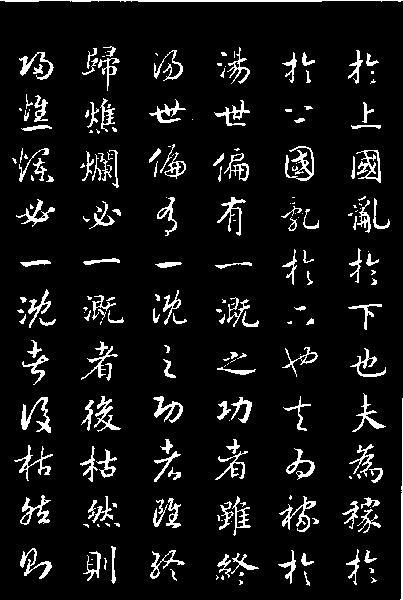 於上國亂於下也夫為稼於
於上國亂於下也夫為稼於
湯世偏有一溉之功者雖終
湯世偏有一溉之功者雖終
歸燋爛必一溉者後枯然則
歸燋爛必一溉者後枯然則